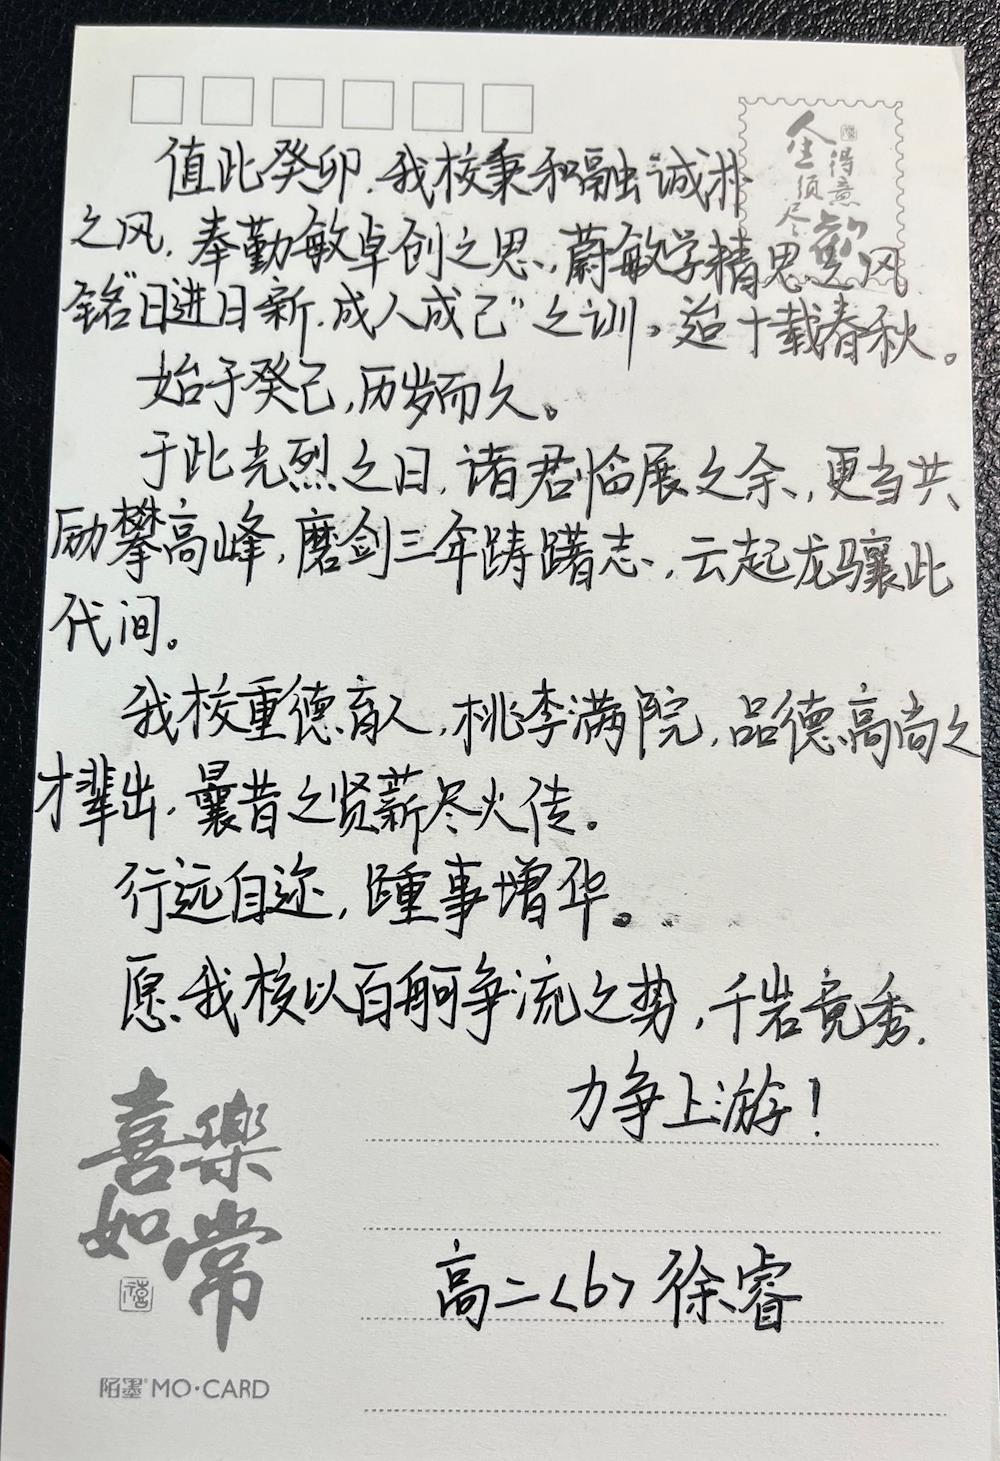 人生得意须尽欢
值此癸卯，我校秉和融诚朴
之风，奉勤敏卓创之思，蔚敏学精思之风
铭"日进日新，成人成己"之训。迨十载春秋。
始于癸己，历岁而久。
于此光烈之日，诸君临展之余，更当共
励攀高峰，磨剑三年踌躇志，云起龙骧此
代间。
我校重德育人，桃李满院，品德高尚之
才辈出，曩昔之贤薪尽火传。
行远自迩，踵事增华。
愿我校以百舸争流之势，千岩竞秀，
力争上游！
喜乐
如常
禧
高二<6> 徐睿
陌墨 MO·CARD